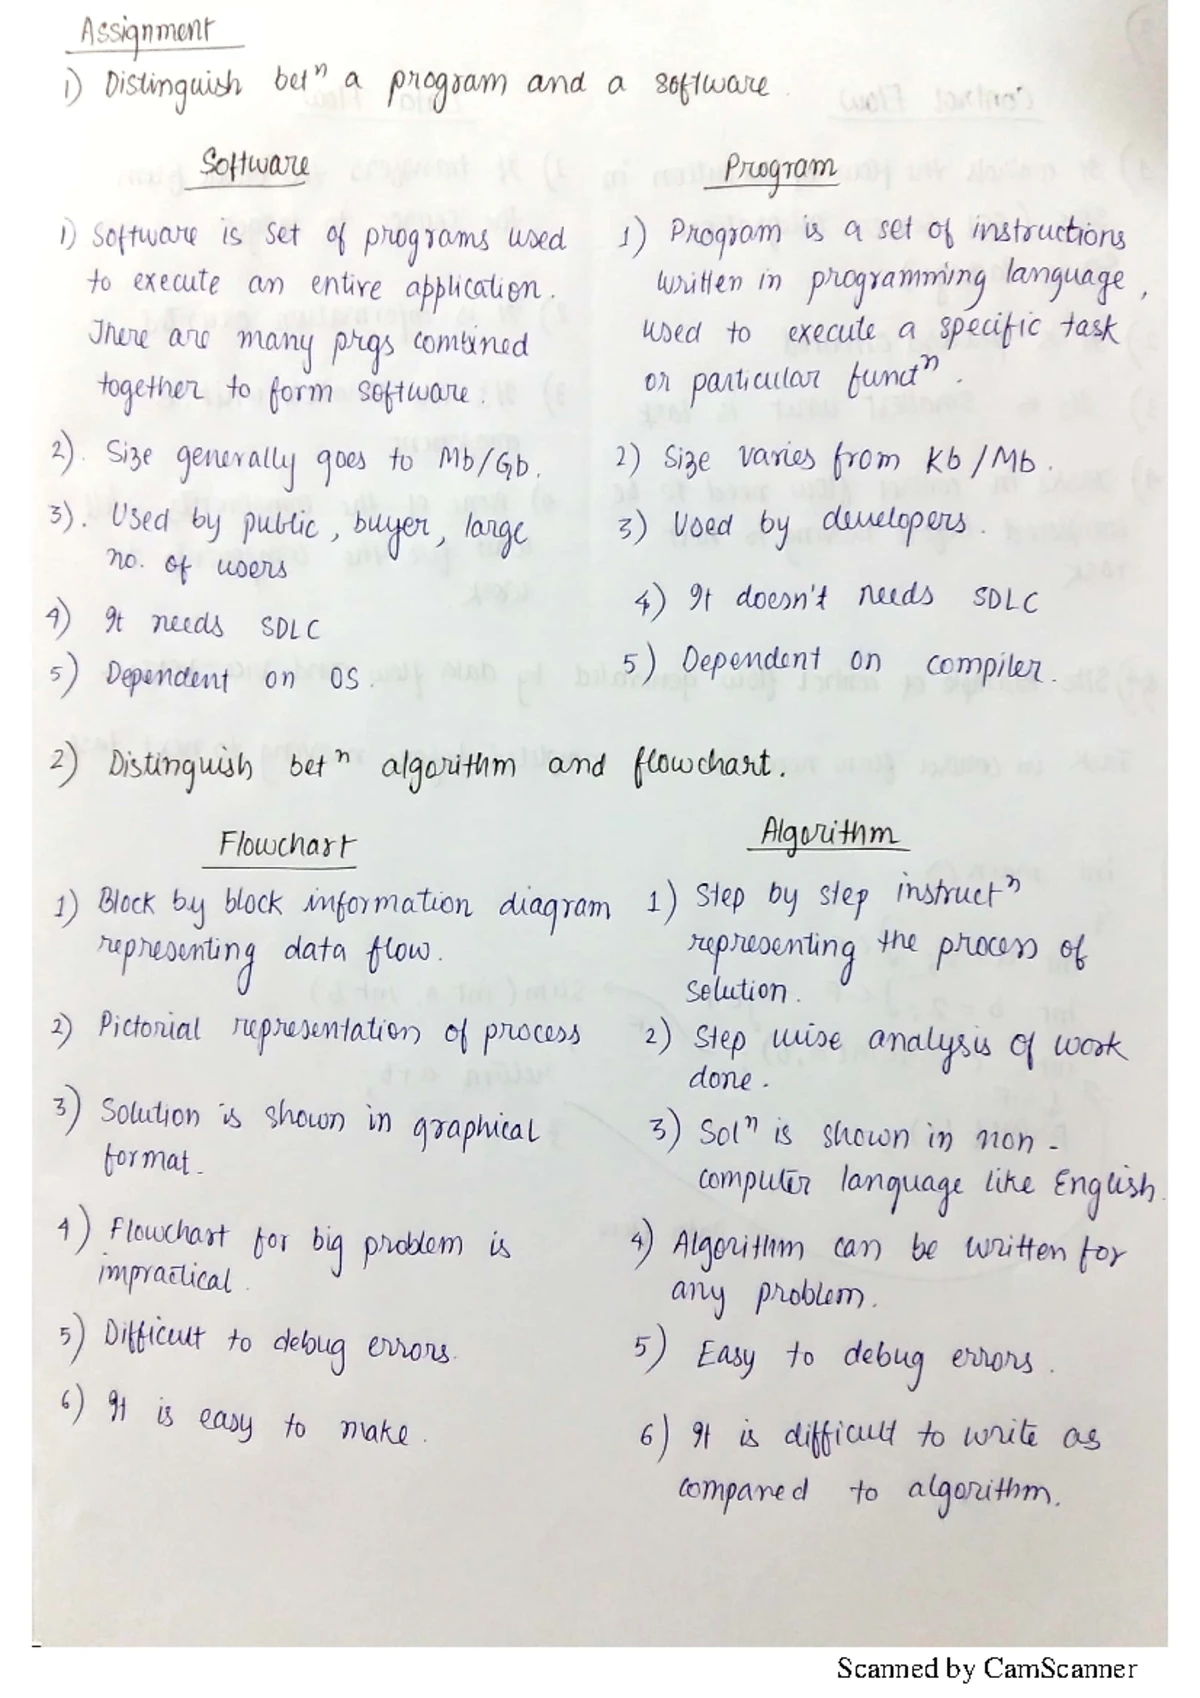 Assignment
1) Distinguish betⁿ a program and a software
Software
1) Software is set of programs used
to execute an entire application.
There are many prgs combined
together to form software.
2). Size generally goes to Mb/Gb.
3). Used by public, buyer, large
no. of users
4) It needs SDLC
5) Dependent on OS.
Program
1) Program is a set of instructions
written in programming language,
used to execute a specific task
or particular functⁿ.
2) Size varies from Kb/Mb.
3) Used by developers.
4) It doesn't needs SDLC
5) Dependent on compiler.
2) Distinguish betⁿ algorithm and flowchart.
Flowchart
1) Block by block information diagram
representing data flow.
2) Pictorial representation of process
3) Solution is shown in graphical
format.
4) Flowchart for big problem is
impractical.
5) Difficult to debug errors.
6) It is easy to make.
Algorithm
1) Step by step instructⁿ
representing the process of
solution.
2) Step wise analysis of work
done.
3) Solⁿ is shown in non-
computer language like English.
4) Algorithm can be written for
any problem.
5) Easy to debug errors.
6) It is difficult to write as
compared to algorithm.
Scanned by CamScanner